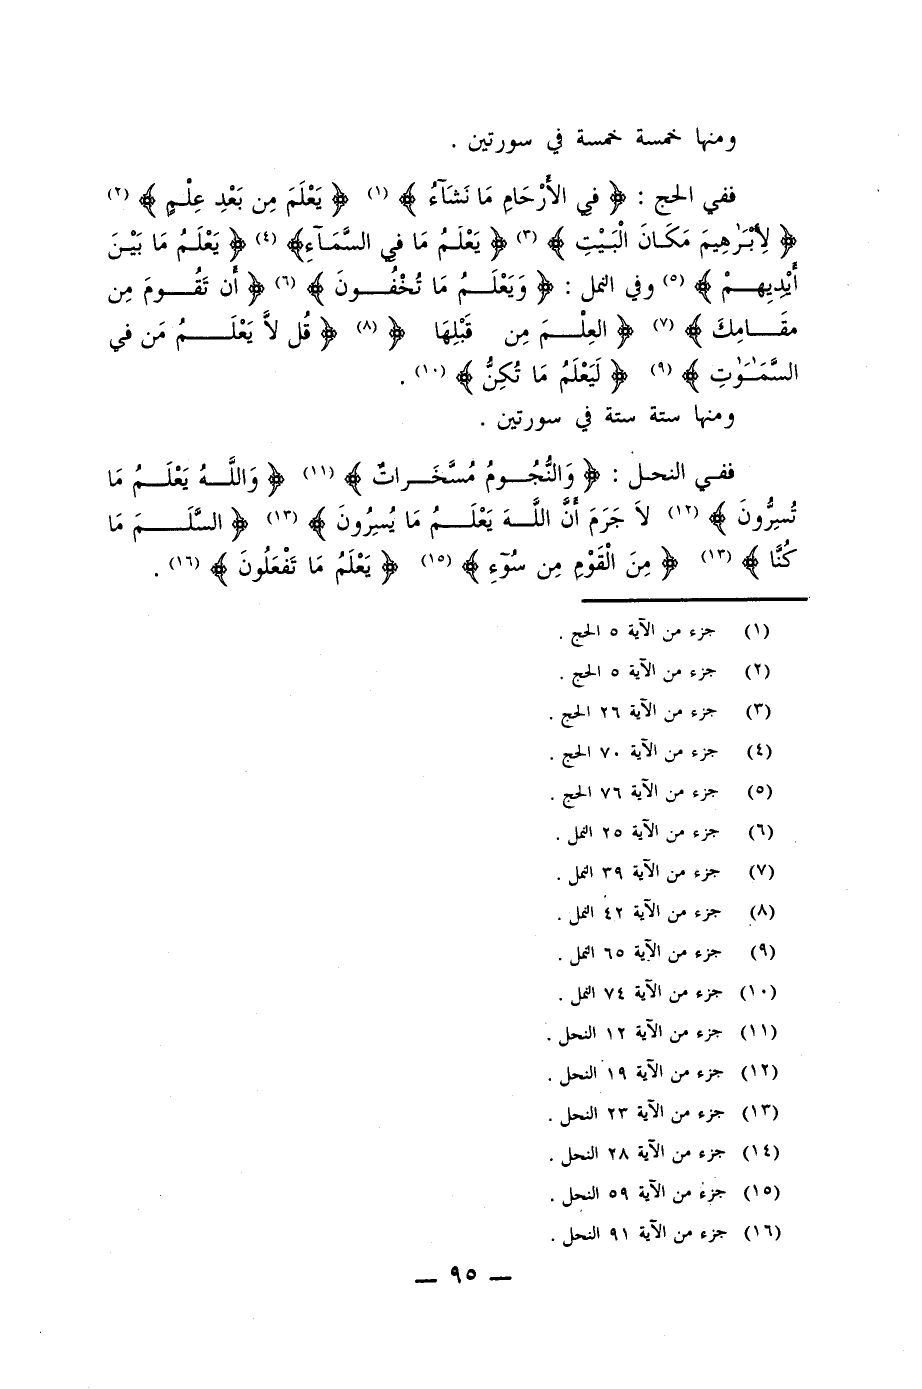 ومنها خمسة خمسة في سورتين .
ففي الحج : ﴿ فِي الأَرْحَامِ مَا نَشَآءُ ﴾ (١) ﴿ يَعْلَمَ مِن بَعْدِ عِلْمٍ ﴾ (٢)
﴿ لِإبْرَٰهِيمَ مَكَانَ الْبَيْتِ ﴾ (٣) ﴿ يَعْلَمُ مَا فِي السَّمَآءِ ﴾ (٤) ﴿ يَعْلَمُ مَا بَيْنَ
أَيْدِيهِمْ ﴾ (٥) وفي النمل : ﴿ وَيَعْلَمُ مَا تُخْفُونَ ﴾ (٦) ﴿ أَن تَقُومَ مِن
مقَامِكَ ﴾ (٧) ﴿ العِلْمَ مِن قَبْلِهَا ﴿ (٨) ﴿ قُل لاَّ يَعْلَمُ مَن فِي
السَّمَـٰوَٰتِ ﴾ (٩) ﴿ لَيَعْلَمُ مَا تُكِنُّ ﴾ (١٠) .
ومنها ستة ستة في سورتين .
ففي النحل : ﴿ وَالنُّجُومُ مُسَّخَراتٌ ﴾ (١١) ﴿ وَاللَّهُ يَعْلَمُ مَا
تُسِرُّونَ ﴾ (١٢) لاَ جَرَمَ أَنَّ اللَّهَ يَعْلَمُ مَا يُسِرُونَ ﴾ (١٣) ﴿ السَّلَمَ مَا
كُنَّا ﴾ (١٣) ﴿ مِنَ الْقَوْمِ مِن سُوٓءِ ﴾ (١٥) ﴿ يَعْلَمُ مَا تَفْعَلُونَ ﴾ (١٦) .
(١) جزء من الآية ٥ الحج .
(٢) جزء من الآية ٥ الحج .
(٣) جزء من الآية ٢٦ الحج .
(٤) جزء من الآية ٧٠ الحج .
(٥) جزء من الآية ٧٦ الحج .
(٦) جزء من الآية ٢٥ النمل .
(٧) جزء من الآية ٣٩ النمل .
(٨) جزء من الآية ٤٢ النمل .
(٩) جزء من الآية ٦٥ النمل .
(١٠) جزء من الآية ٧٤ النمل .
(١١) جزء من الآية ١٢ النحل .
(١٢) جزء من الآية ١٩ النحل .
(١٣) جزء من الآية ٢٣ النحل .
(١٤) جزء من الآية ٢٨ النحل .
(١٥) جزء من الآية ٥٩ النحل .
(١٦) جزء من الآية ٩١ النحل .
— ٩٥ —